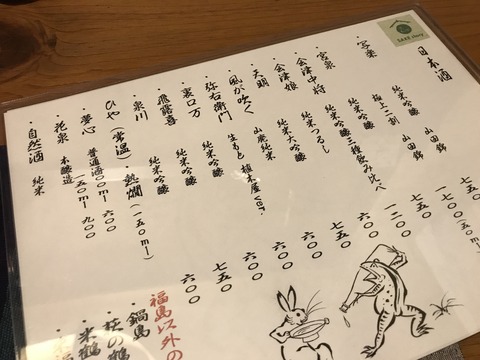 SAKE story
日本酒
・写楽 純米吟醸 山田錦 七五〇(一五〇ml)
極上二割 山田錦 一七五〇
純米吟醸三種飲み比べ 一二〇〇
・宮泉 純米吟醸 七五〇
・会津中将 純米吟醸 六〇〇
・会津娘 純米つるし 七五〇
・天明 純米大吟醸
・風が吹く 山廃純米 六〇〇
・弥右衛門 生もと 植木屋ver. 六〇〇
・裏口万 純米吟醸 七五〇
・飛露喜 純米吟醸 七五〇
・泉川 純米吟醸 六〇〇
・ひや(常温)・熱燗(一五〇ml)
・夢心 普通酒 一五〇ml 九〇〇
・花泉 本醸造
・自然酒 純米
福島以外の
・鍋島
・萩の鶴
・米鶴